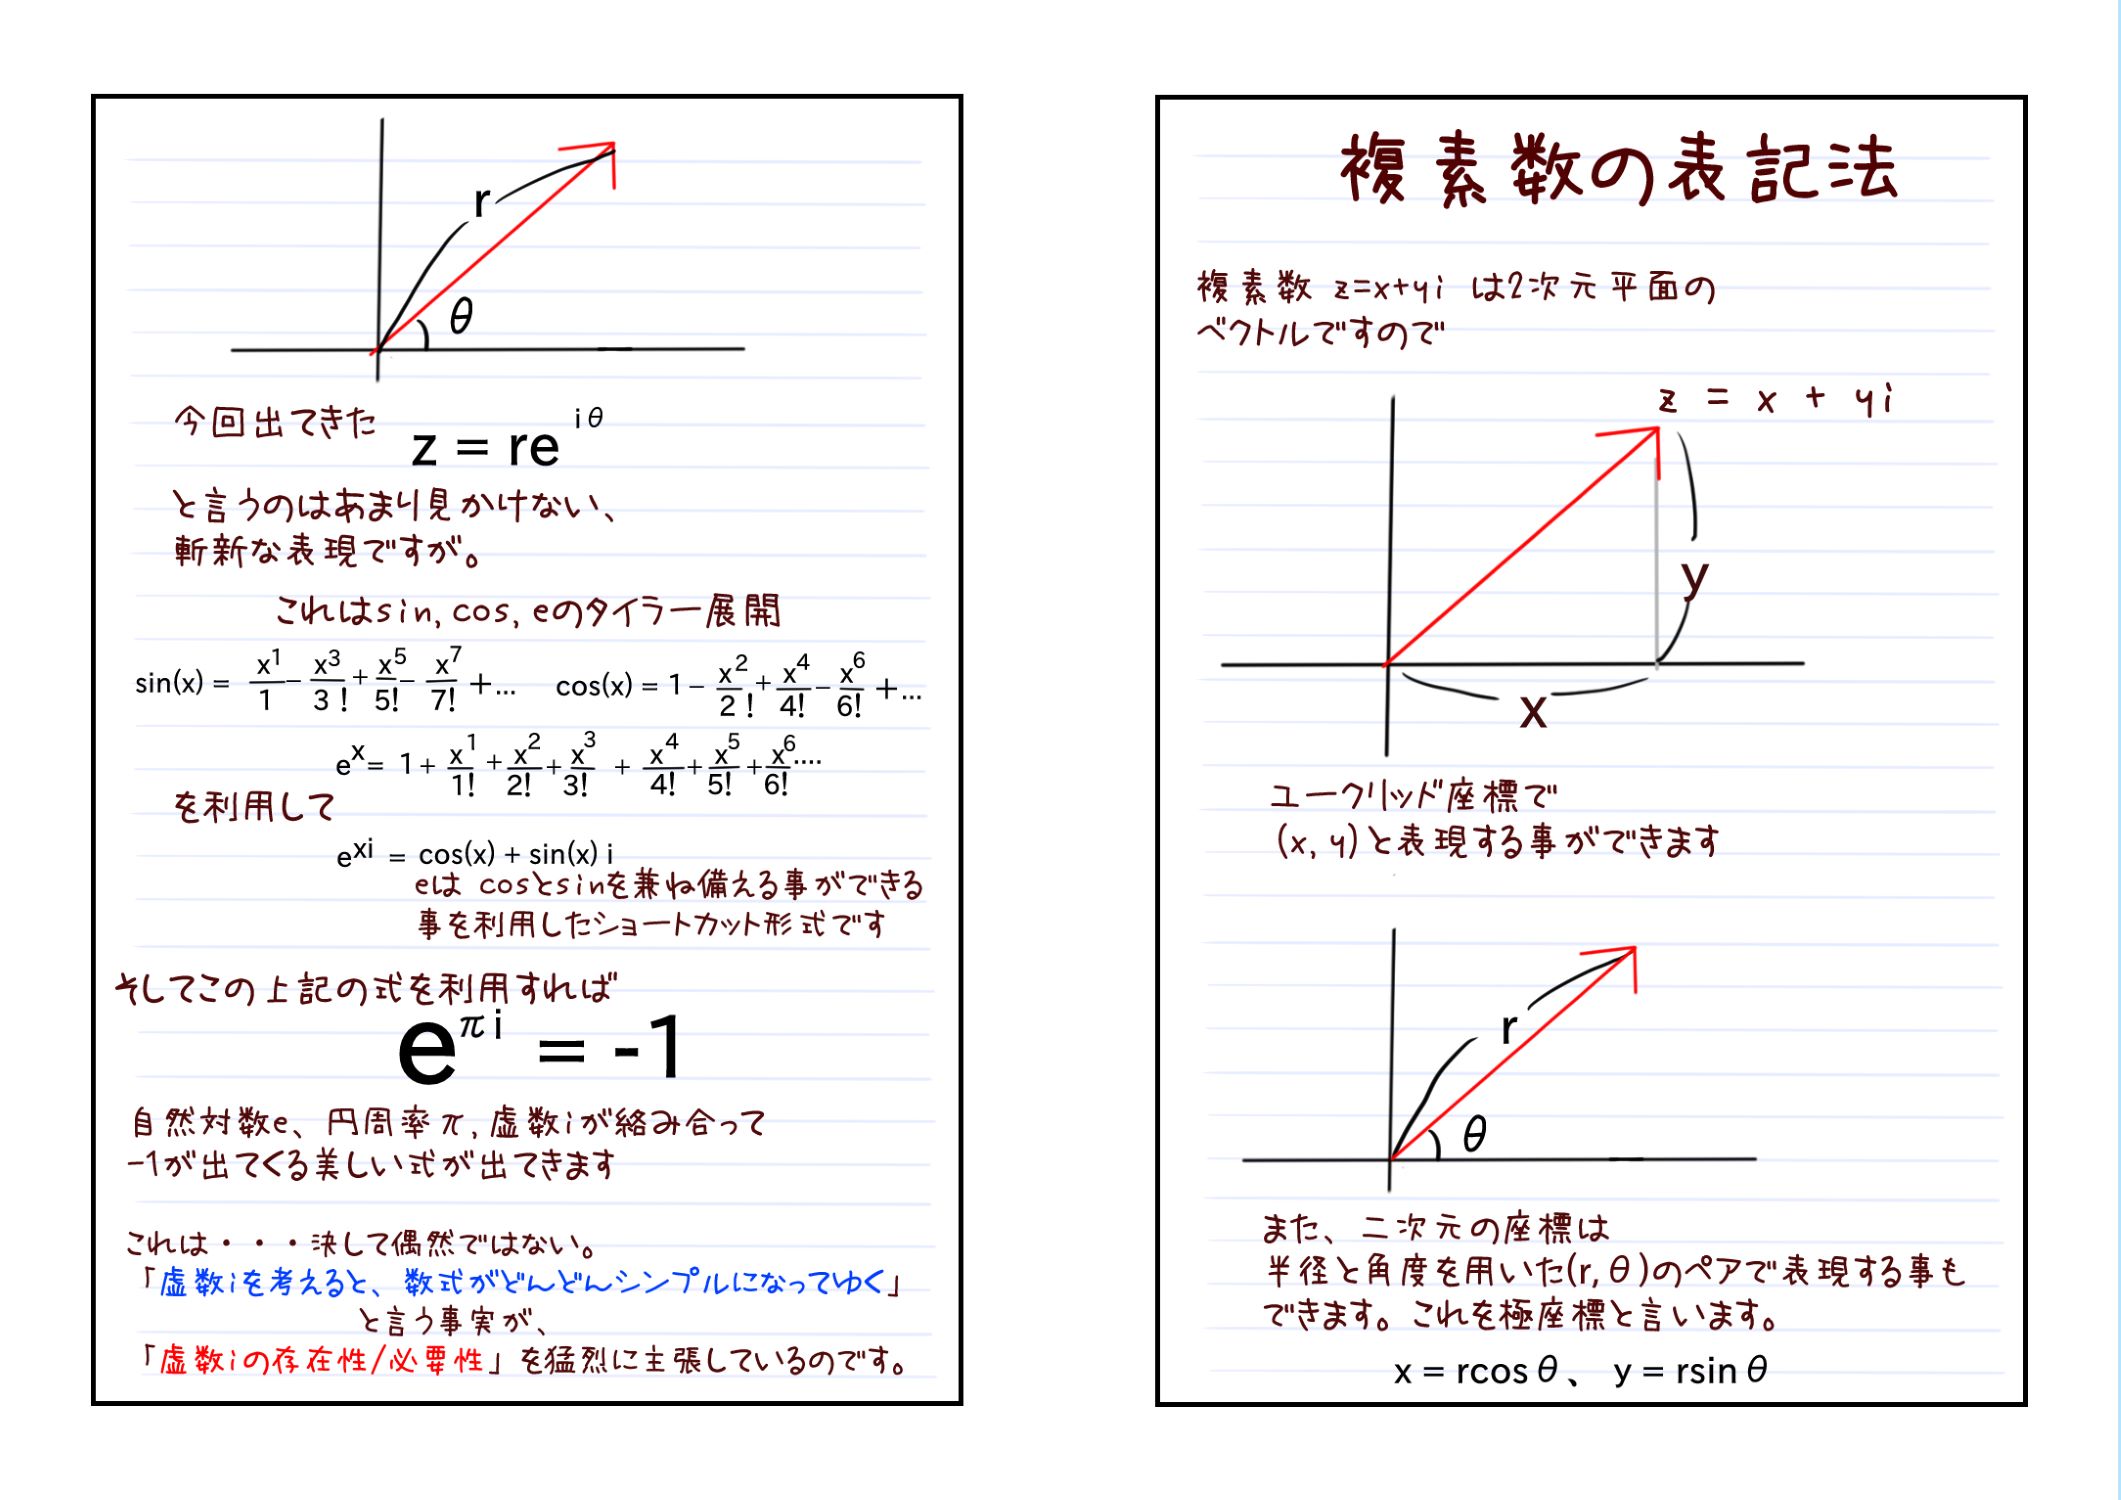 複素数の表記法
複素数 z=x+yi は2次元平面の
ベクトルですので
z = x + yi
y
x
ユークリッド座標で
(x, y)と表現する事ができます
r
θ
また、二次元の座標は
半径と角度を用いた(r, θ)のペアで表現する事も
できます。これを極座標と言います。
x = rcosθ、 y = rsinθ
r
θ
今回出てきた z = re^{iθ}
と言うのはあまり見かけない、
斬新な表現ですが。
これはsin, cos, eのタイラー展開
sin(x) = x^1/1 − x^3/3! + x^5/5! − x^7/7! + ... cos(x) = 1 − x^2/2! + x^4/4! − x^6/6! + ...
e^x = 1 + x^1/1! + x^2/2! + x^3/3! + x^4/4! + x^5/5! + x^6/6! ....
を利用して
e^{xi} = cos(x) + sin(x) i
eは cosとsinを兼ね備える事ができる
事を利用したショートカット形式です
そしてこの上記の式を利用すれば
e^{πi} = -1
自然対数e、円周率π, 虚数iが絡み合って
-1が出てくる美しい式が出てきます
これは・・・決して偶然ではない。
「虚数iを考えると、数式がどんどんシンプルになってゆく」
と言う事実が、
「虚数iの存在性/必要性」を猛烈に主張しているのです。